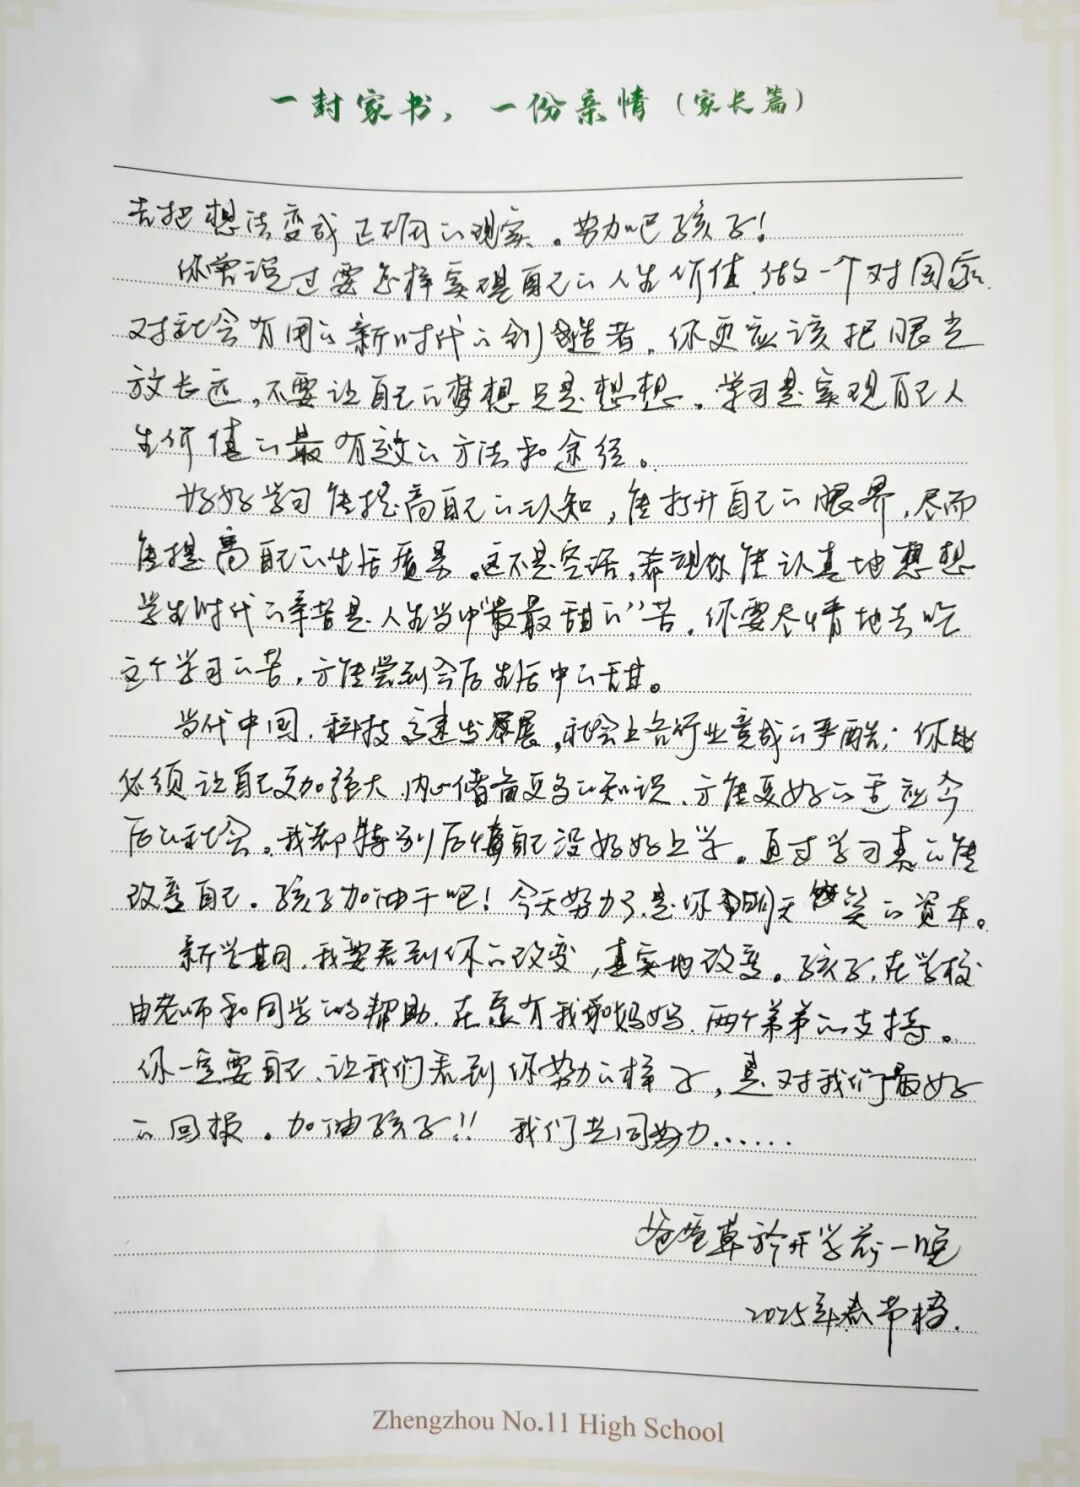 一封家书，一份亲情（家长篇）
去把想法变成正确的现实。努力吧孩子！
你常说过要怎样实现自己的人生价值，做一个对国家
对社会有用的新时代的创造者，你更应该把眼光
放长远，不要让自己的梦想只是想想。学习是实现自己人
生价值的最有效的方法和途径。
好好学习能提高自己的认知，能打开自己的眼界，尽而
能提高自己的生活质量。这不是空话，希望你能认真地想想
学生时代的辛苦是人生当中“最最甜的”苦，你要尽情地去吃
这个学习的苦，方能尝到今后生活中的甜。
当代中国，科技高速发展，社会上各行业竞成的严酷；你
必须让自己更加强大，内心储备更多的知识，方能更好的适应今
后的社会。我都特别后悔自己没好好上学。通过学习真的能
改变自己。孩子加油干吧！今天努力了是你明天笑的资本。
新学期间，我要看到你的改变，真实地改变。孩子，在学校
由老师和同学的帮助，在家有我和妈妈，两个弟弟的支持。
你一定要自己，让我们看到你努力的样子，是对我们最好
的回报。加油孩子！！ 我们共同努力……
爸爸草于开学前一晚
2025年春节档.
Zhengzhou No.11 High School